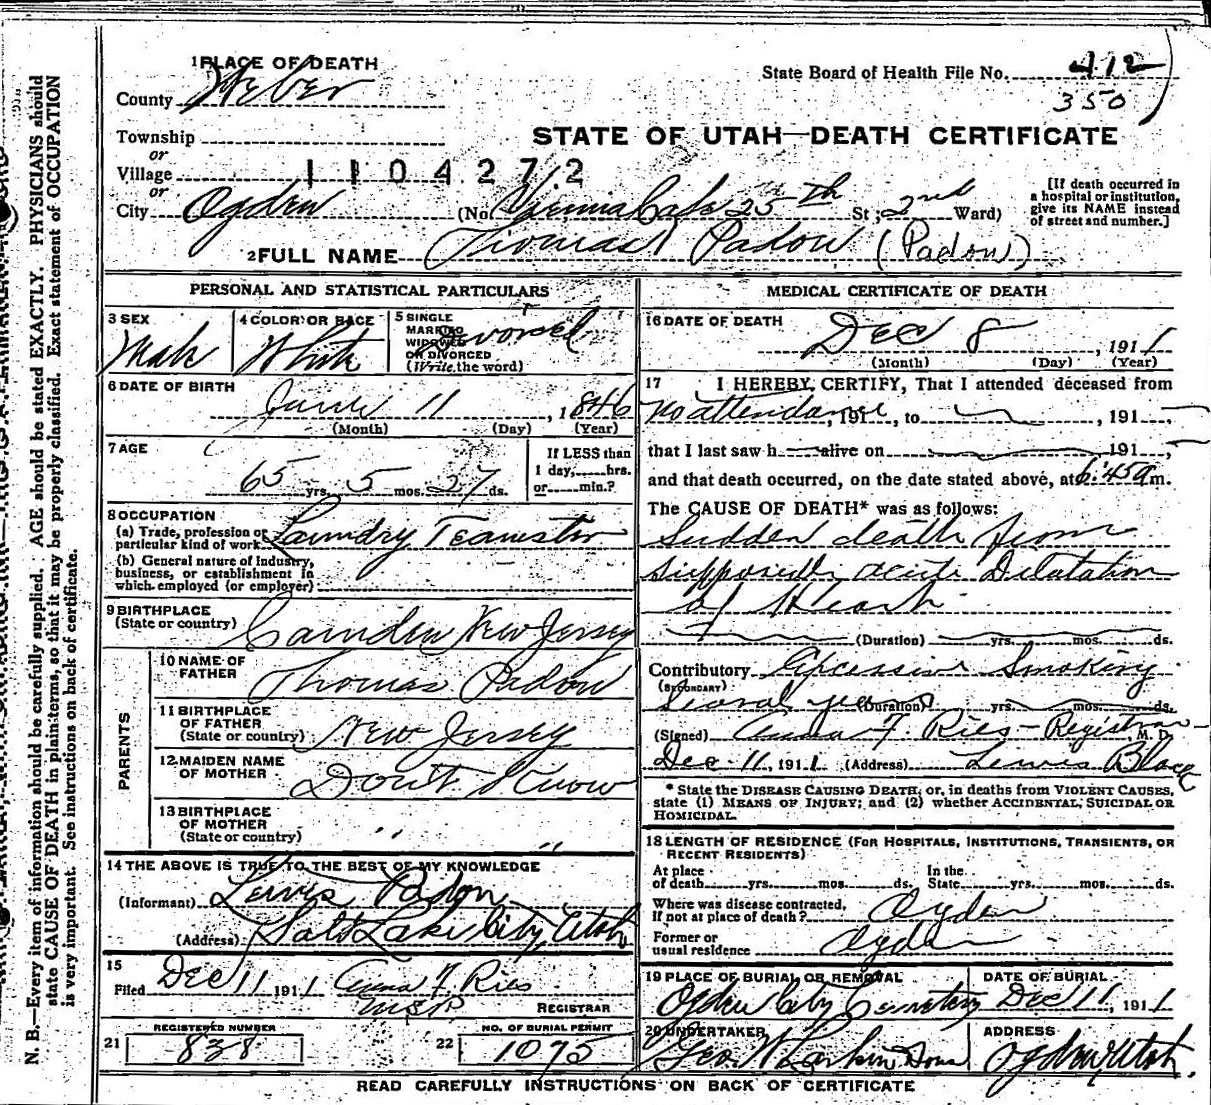 1 PLACE OF DEATH
County Weber
State Board of Health File No. 412
350
Township
or
Village
1104272
or
STATE OF UTAH—DEATH CERTIFICATE
City Ogden (No. 25th St; 2nd Ward)
[If death occurred in a hospital or institution, give its NAME instead of street and number.]
2 FULL NAME Thomas Padow (Padon)
PERSONAL AND STATISTICAL PARTICULARS
3 SEX Male
4 COLOR OR RACE White
5 SINGLE MARRIED WIDOWED OR DIVORCED (Write the word) Devorced
6 DATE OF BIRTH
June 11, 1846
(Month) (Day) (Year)
7 AGE
65 yrs. 5 mos. 27 ds.
If LESS than 1 day,......hrs. or......min.?
8 OCCUPATION
(a) Trade, profession or particular kind of work Laundry Teamster
(b) General nature of industry, business, or establishment in which employed (or employer)
9 BIRTHPLACE
(State or country) Camden New Jersey
PARENTS
10 NAME OF FATHER Thomas Padow
11 BIRTHPLACE OF FATHER (State or country) New Jersey
12 MAIDEN NAME OF MOTHER Dont Know
13 BIRTHPLACE OF MOTHER (State or country) " "
14 THE ABOVE IS TRUE TO THE BEST OF MY KNOWLEDGE
(Informant) Lewis Padon
(Address) Salt Lake City, Utah
15
Filed Dec 11 1911 Anna F. Ries
REGISTRAR
REGISTERED NUMBER
21 838
NO. OF BURIAL PERMIT
22 1075
MEDICAL CERTIFICATE OF DEATH
16 DATE OF DEATH
Dec 8, 1911
(Month) (Day) (Year)
17 I HEREBY CERTIFY, That I attended deceased from
no attendance, 191 , to , 191
that I last saw h alive on , 191 ,
and that death occurred, on the date stated above, at 6:45 a m.
The CAUSE OF DEATH* was as follows:
Sudden death from
supposedly acute Dilatation
of Heart
(Duration) yrs. mos. ds.
Contributory Excessive Smoking
(SECONDARY)
several years (Duration) yrs. mos. ds.
(Signed) Anna F. Ries - Registrar M. D.
Dec 11, 1911 (Address) Lewis Block
* State the DISEASE CAUSING DEATH, or, in deaths from VIOLENT CAUSES, state (1) MEANS OF INJURY; and (2) whether ACCIDENTAL, SUICIDAL OR HOMICIDAL.
18 LENGTH OF RESIDENCE (FOR HOSPITALS, INSTITUTIONS, TRANSIENTS, OR RECENT RESIDENTS)
At place of death yrs. mos. ds. In the State yrs. mos. ds.
Where was disease contracted, if not at place of death? Ogden
Former or usual residence Ogden
19 PLACE OF BURIAL OR REMOVAL
Ogden City Cemetery
DATE OF BURIAL
Dec 11, 1911
20 UNDERTAKER
Geo. W Larkin Sons
ADDRESS
Ogden, Utah.
READ CAREFULLY INSTRUCTIONS ON BACK OF CERTIFICATE
N. B.—Every item of information should be carefully supplied. AGE should be stated EXACTLY. PHYSICIANS should
state CAUSE OF DEATH in plain terms, so that it may be properly classified. Exact statement of OCCUPATION
is very important. See instructions on back of certificate.